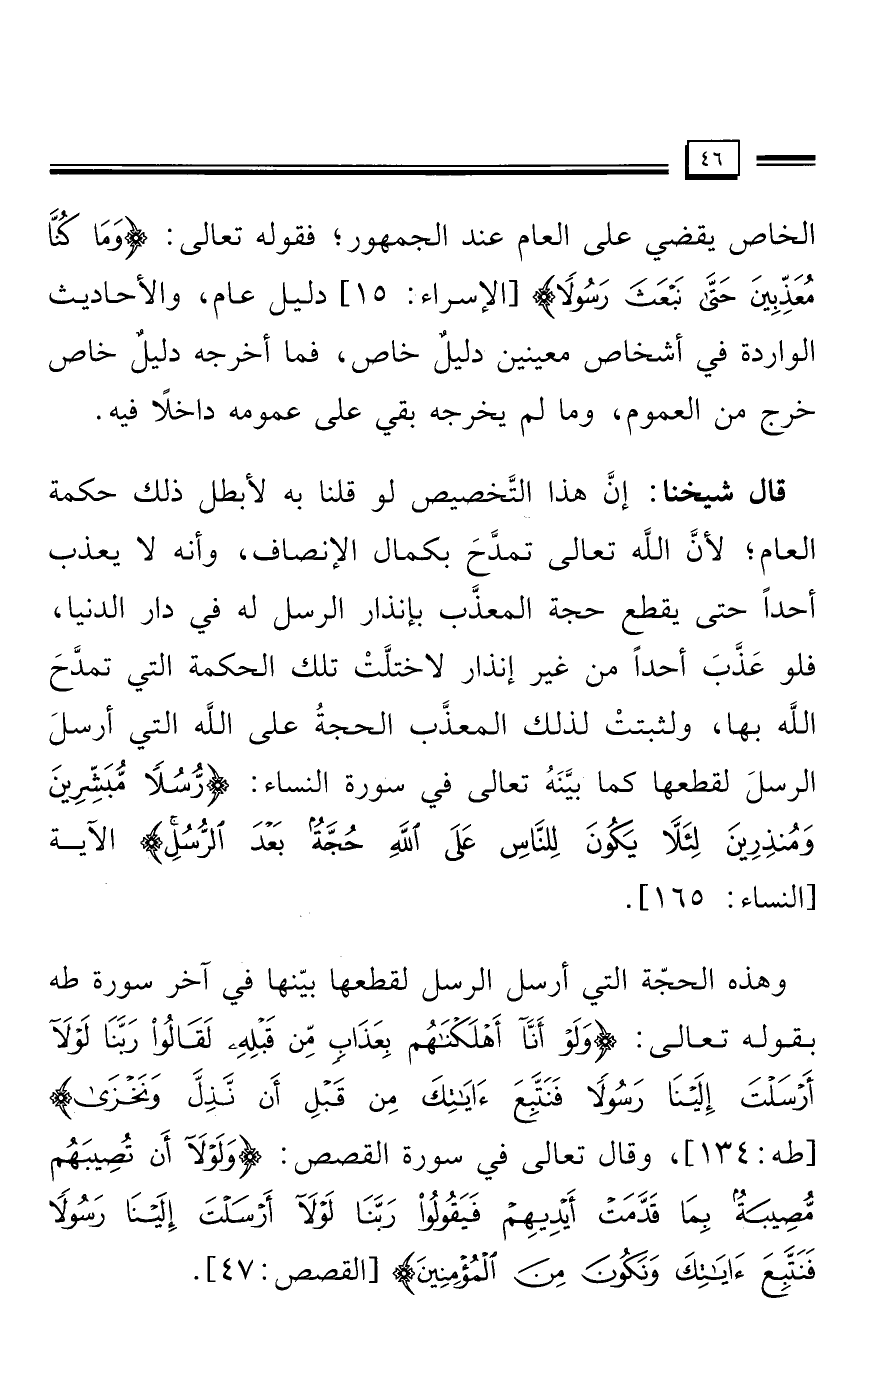 ٤٦
الخاص يقضي على العام عند الجمهور؛ فقوله تعالى: ﴿وَمَا كُنَّا
مُعَذِّبِينَ حَتَّىٰ نَبْعَثَ رَسُولًا﴾ [الإسراء: ١٥] دليل عام، والأحاديث
الواردة في أشخاص معينين دليلٌ خاص، فما أخرجه دليلٌ خاص
خرج من العموم، وما لم يخرجه بقي على عمومه داخلًا فيه.
قال شيخنا: إنَّ هذا التَّخصيص لو قلنا به لأبطل ذلك حكمة
العام؛ لأنَّ اللَّه تعالى تمدَّحَ بكمال الإنصاف، وأنه لا يعذب
أحداً حتى يقطع حجة المعذَّب بإنذار الرسل له في دار الدنيا،
فلو عَذَّبَ أحداً من غير إنذار لاختلَّتْ تلك الحكمة التي تمدَّحَ
اللَّه بها، ولثبتتْ لذلك المعذَّب الحجةُ على اللَّه التي أرسلَ
الرسلَ لقطعها كما بيَّنَهُ تعالى في سورة النساء: ﴿رُّسُلًا مُّبَشِّرِينَ
وَمُنذِرِينَ لِئَلَّا يَكُونَ لِلنَّاسِ عَلَى ٱللَّهِ حُجَّةُۢ بَعْدَ ٱلرُّسُلِۚ﴾ الآية
[النساء: ١٦٥].
وهذه الحجّة التي أرسل الرسل لقطعها بيّنها في آخر سورة طه
بقوله تعالى: ﴿وَلَوْ أَنَّآ أَهْلَكْنَٰهُم بِعَذَابٍ مِّن قَبْلِهِۦ لَقَالُوا۟ رَبَّنَا لَوْلَآ
أَرْسَلْتَ إِلَيْنَا رَسُولًا فَنَتَّبِعَ ءَايَٰتِكَ مِن قَبْلِ أَن نَّذِلَّ وَنَخْزَىٰ﴾
[طه: ١٣٤]، وقال تعالى في سورة القصص: ﴿وَلَوْلَآ أَن تُصِيبَهُم
مُّصِيبَةُۢ بِمَا قَدَّمَتْ أَيْدِيهِمْ فَيَقُولُوا۟ رَبَّنَا لَوْلَآ أَرْسَلْتَ إِلَيْنَا رَسُولًا
فَنَتَّبِعَ ءَايَٰتِكَ وَنَكُونَ مِنَ ٱلْمُؤْمِنِينَ﴾ [القصص: ٤٧].